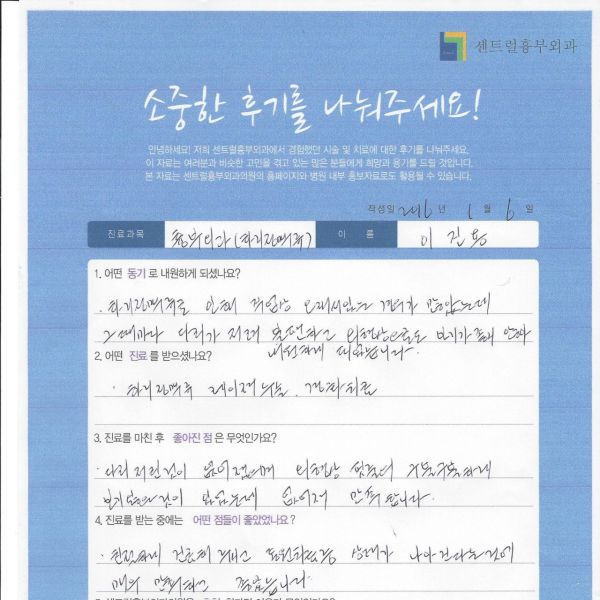 센트럴흉부외과
소중한 후기를 나눠주세요!
안녕하세요! 저희 센트럴흉부외과에서 경험했던 시술 및 치료에 대한 후기를 나눠주세요.
이 자료는 여러분과 비슷한 고민을 겪고 있는 많은 분들에게 희망과 용기를 드릴 것입니다.
본 자료는 센트럴흉부외과의원의 홈페이지와 병원 내부 홍보자료로도 활용될 수 있습니다.
작성일 2016 년 1 월 6 일
진료과목 흉부외과(하지정맥류) 이 름 이진용
1. 어떤 동기로 내원하게 되셨나요?
· 하지정맥류로 인해 직업상 오래서있는 경우가 많았는데
그때마다 다리가 저려 불편하고 외형상으로도 보기가 좋지 않아
내원하게 되었습니다.
2. 어떤 진료를 받으셨나요?
· 하지정맥류 레이저수술.
3. 진료를 마친 후 좋아진 점은 무엇인가요?
· 다리 저린것이 없어졌으며 외형상 핏줄이 구불구불하게
보기 것이 있었는데 없어져 만족합니다.
4. 진료를 받는 중에는 어떤 점들이 좋았었나요?
· 친절하게 상태가 나아진다는것에
매우 좋았습니다.